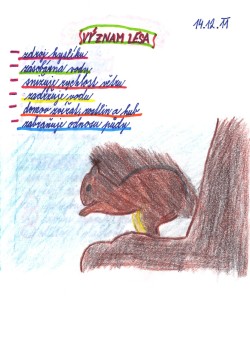 14.12.
VÝZNAM LESA
- zdroj kyslíku
- zásobárna vody
- snižuje rychlost větru
- zadržuje vodu
- domov zvířat, rostlin a hub
- zabraňuje odnosu půdy